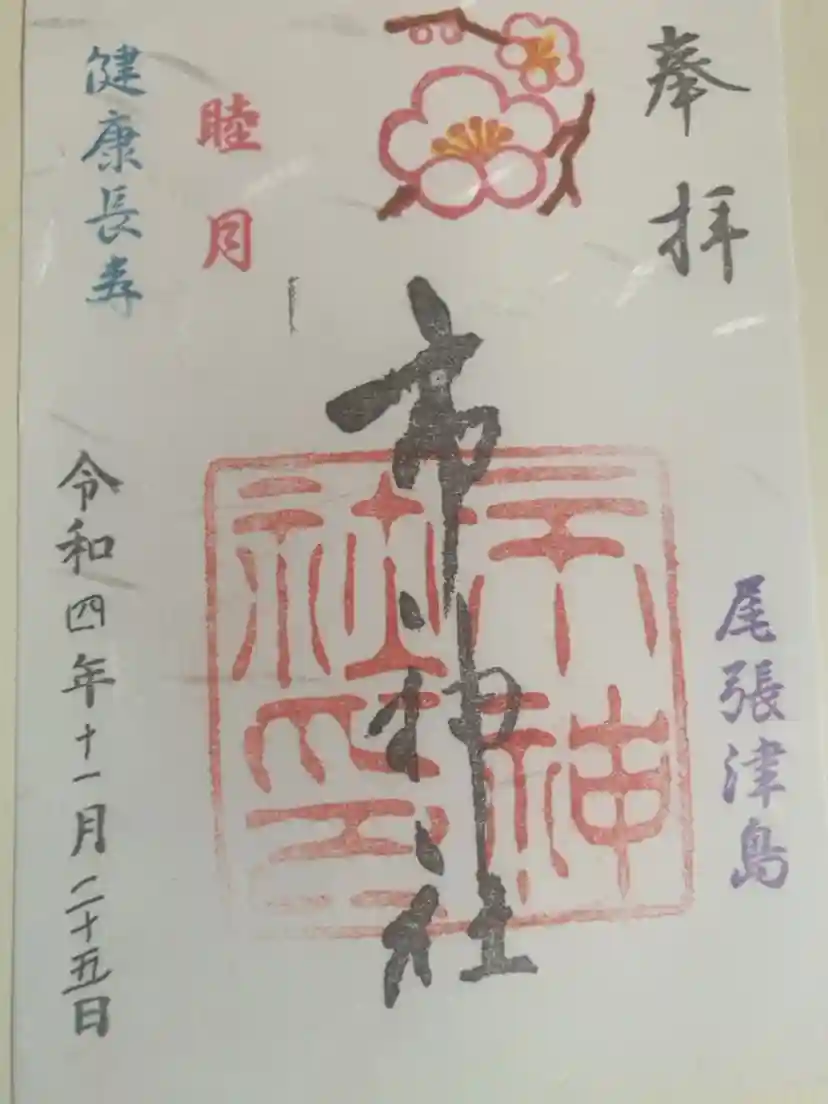 奉拝
尾張津島
市神社
神
社印
睦月
健康長寿
令和四年十一月二十五日